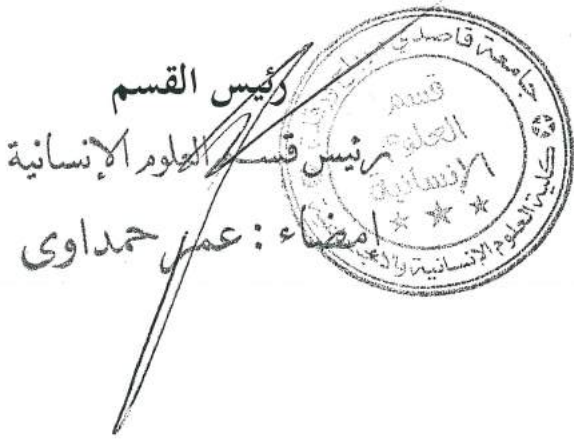 رئيس القسم
رئيس قسم العلوم الإنسانية
امضاء : عمر حمداوى
جامعة قاصدي
قسم
العلوم
الإنسانية
كلية العلوم الإنسانية